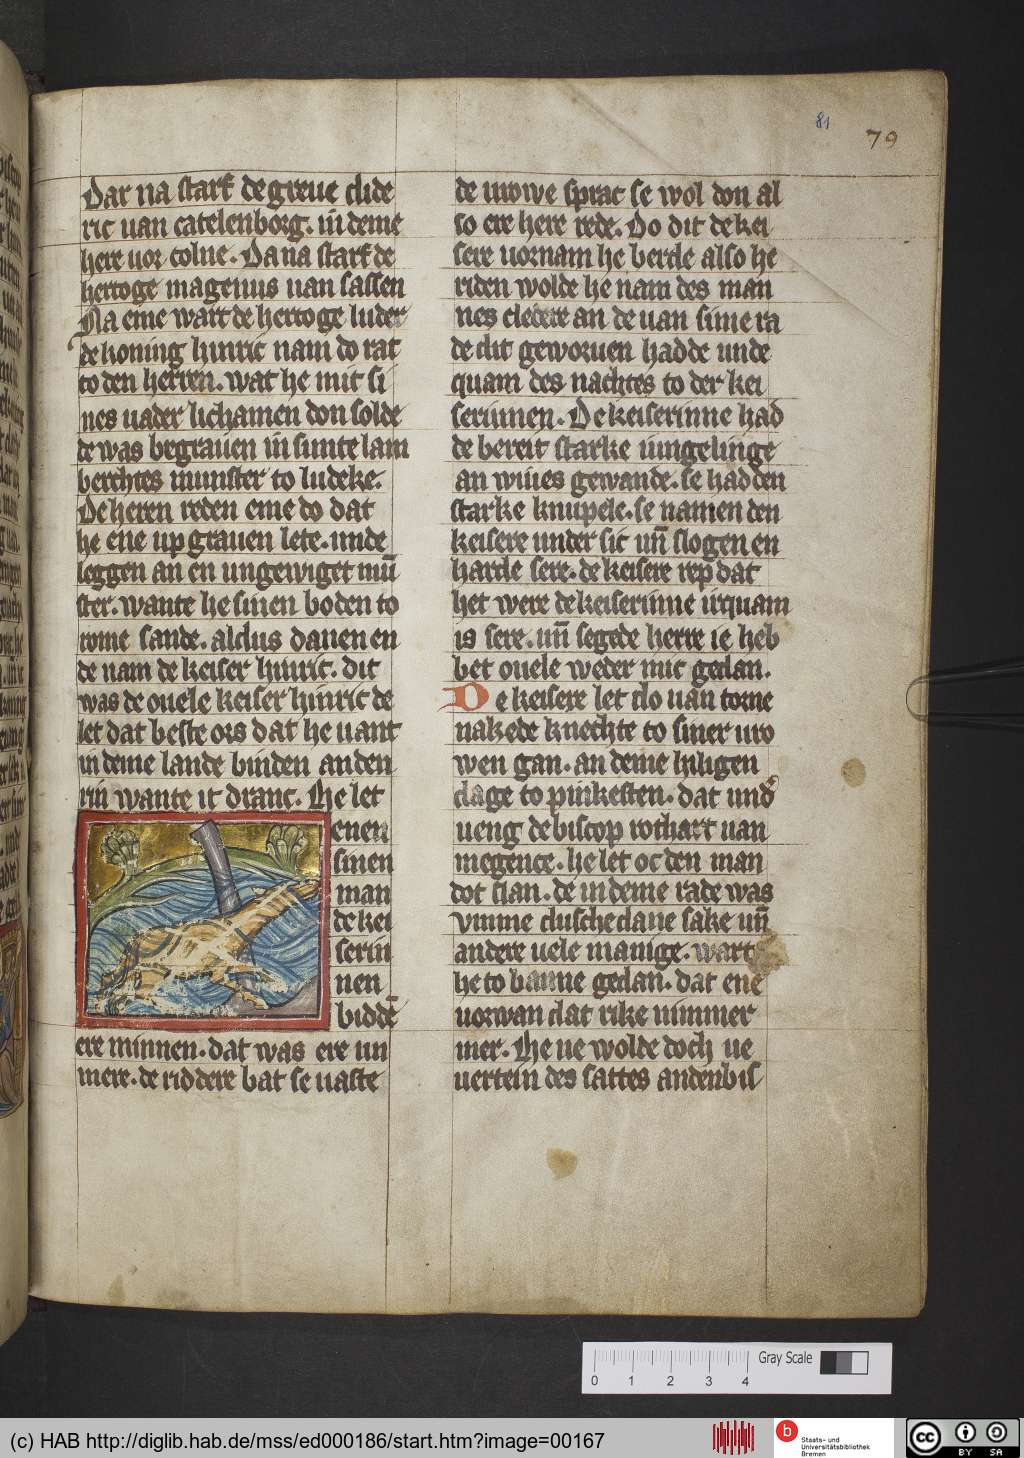 81
79
Dar na starf de greue dide
ric uan catelenborg. in deme
here uor colne. Da na starf de
hertoge magenus uan sassen
Na eme wart de hertoge luder
de koning hinric nam do rat
to den herren. wat he mit si
nes uader lichamen don solde
de was begrauen in sunte lam
berchtes munster to ludeke.
De heren reden eme do dat
he ene up grauen lete. unde
leggen an en ungewiget mū
ster. wante he sinen boden to
rome sande. aldus dauen en
de nam de keiser hinric. dit
was de ouele keiser hinric de
let dat beste ors dat he uant
in deme lande binden an den
rin wante it dranc. He let
enen
sinen
man
de kei
serin
nen
biddē
ere minnen. dat was ere un
mere. de riddere bat se uaste
de urowe sprac se wol don al
so ere here rede. Do dit de kei
sere uornam he berde also he
riden wolde he nam des man
nes cledere an de uan sime ra
de dit geworuen hadde unde
quam des nachtes to der kei
serinnen. De keiserinne had
de bereit starke iungelinge
an wiues gewande. se hadden
starke knupele. se namen den
keisere under sic uñ slogen en
harde sere. de keisere rep dat
het were de keiserinne irquam
is sere. uñ segede herre ie heb
bet ouele weder mic gedan.
De keisere let do uan torne
nakede knechte to siner uro
wen gan. an deme hiligen
dage to pinkesten. dat und
ueng de biscop rothart uan
megence. he let oc den man
dot slan. de in deme rade was
Vmme dusche dane sake uñ
andere uele manige. wart
he to banne gedan. dat ene
uorwan dat rike nimmer
mer. He ne wolde doch ne
uertein des sattes an den bis
0 1 2 3 4
Gray Scale
(c) HAB http://diglib.hab.de/mss/ed000186/start.htm?image=00167
b
Staats- und
Universitätsbibliothek
Bremen
cc
BY SA